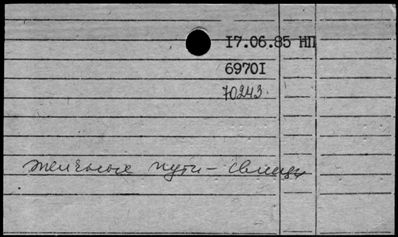 17.06.85 НП
69701
70243
Желчные пути – свищи